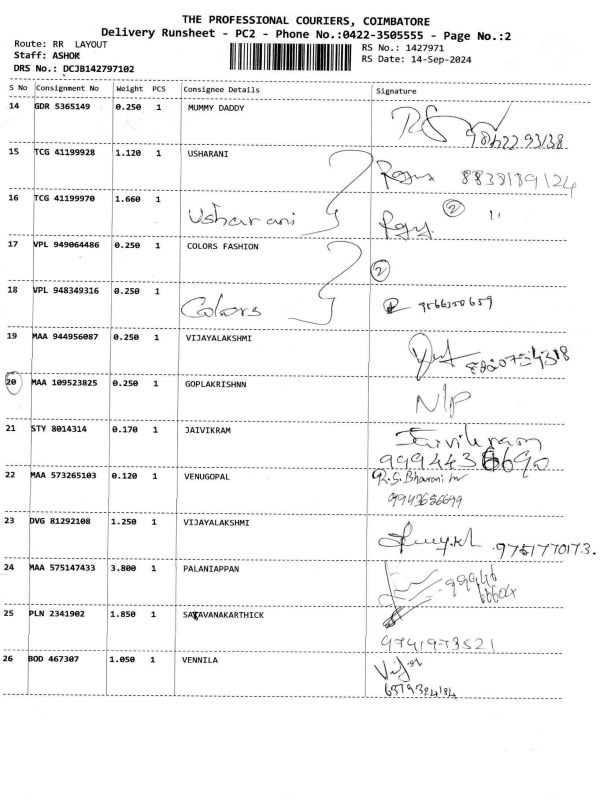 THE PROFESSIONAL COURIERS, COIMBATORE
Delivery Runsheet - PC2 - Phone No.:0422-3505555 - Page No.:2
Route: RR LAYOUT
RS No.: 1427971
Staff: ASHOK
RS Date: 14-Sep-2024
DRS No.: DCJB142797102
S No Consignment No Weight PCS Consignee Details Signature
14 GDR 5365149 0.250 1 MUMMY DADDY
15 TCG 41199928 1.120 1 USHARANI
8838189124
16 TCG 41199970 1.660 1 Usharani
2 11
17 VPL 949064486 0.250 1 COLORS FASHION
2
18 VPL 948349316 0.250 1 Colors
19 MAA 944956087 0.250 1 VIJAYALAKSHMI
20 MAA 109523825 0.250 1 GOPLAKRISHNN
N/P
21 STY 8014314 0.170 1 JAIVIKRAM Jaivikram
22 MAA 573265103 0.120 1 VENUGOPAL
9943656699
23 DVG 81292108 1.250 1 VIJAYALAKSHMI
9751770173.
24 MAA 575147433 3.800 1 PALANIAPPAN
99946
66604
25 PLN 2341902 1.850 1 SARAVANAKARTHICK
9741973521
26 BOD 467307 1.050 1 VENNILA